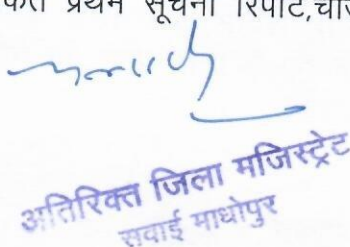 प्रथम सूचना रिपोर्ट,
अतिरिक्त जिला मजिस्ट्रेट
सवाई माधोपुर